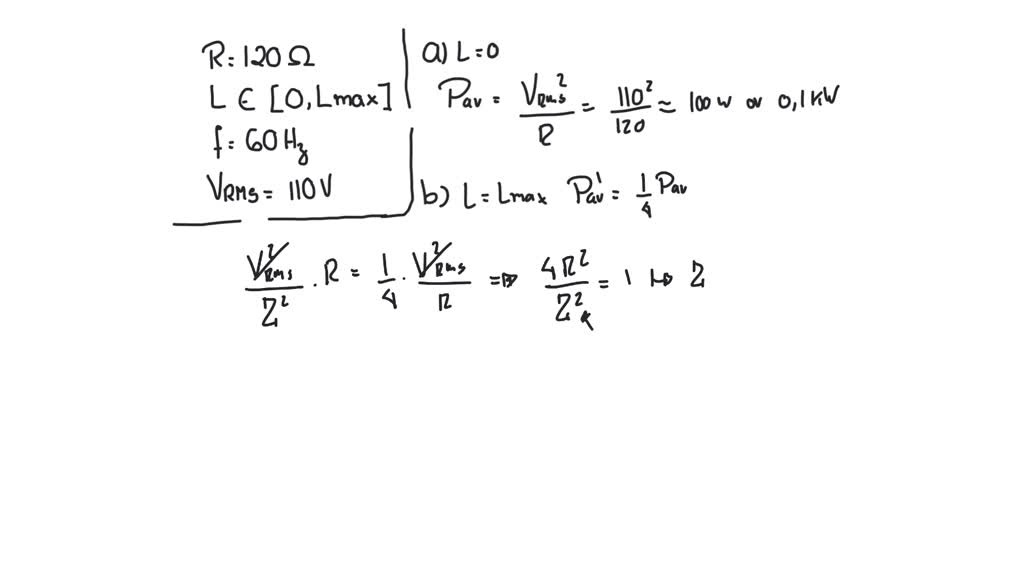 R = 120 Ω
L ∈ [0, Lmax]
f = 60 Hz
VRMS = 110 V
a) L = 0
Pav = VRms² / R = 110² / 120 ≈ 100 W or 0,1 kW
b) L = Lmax Pav' = 1/4 Pav
VRms² / Z² · R = 1/4 · VRms² / R => 4R² / Z² = 1 ↦ Z